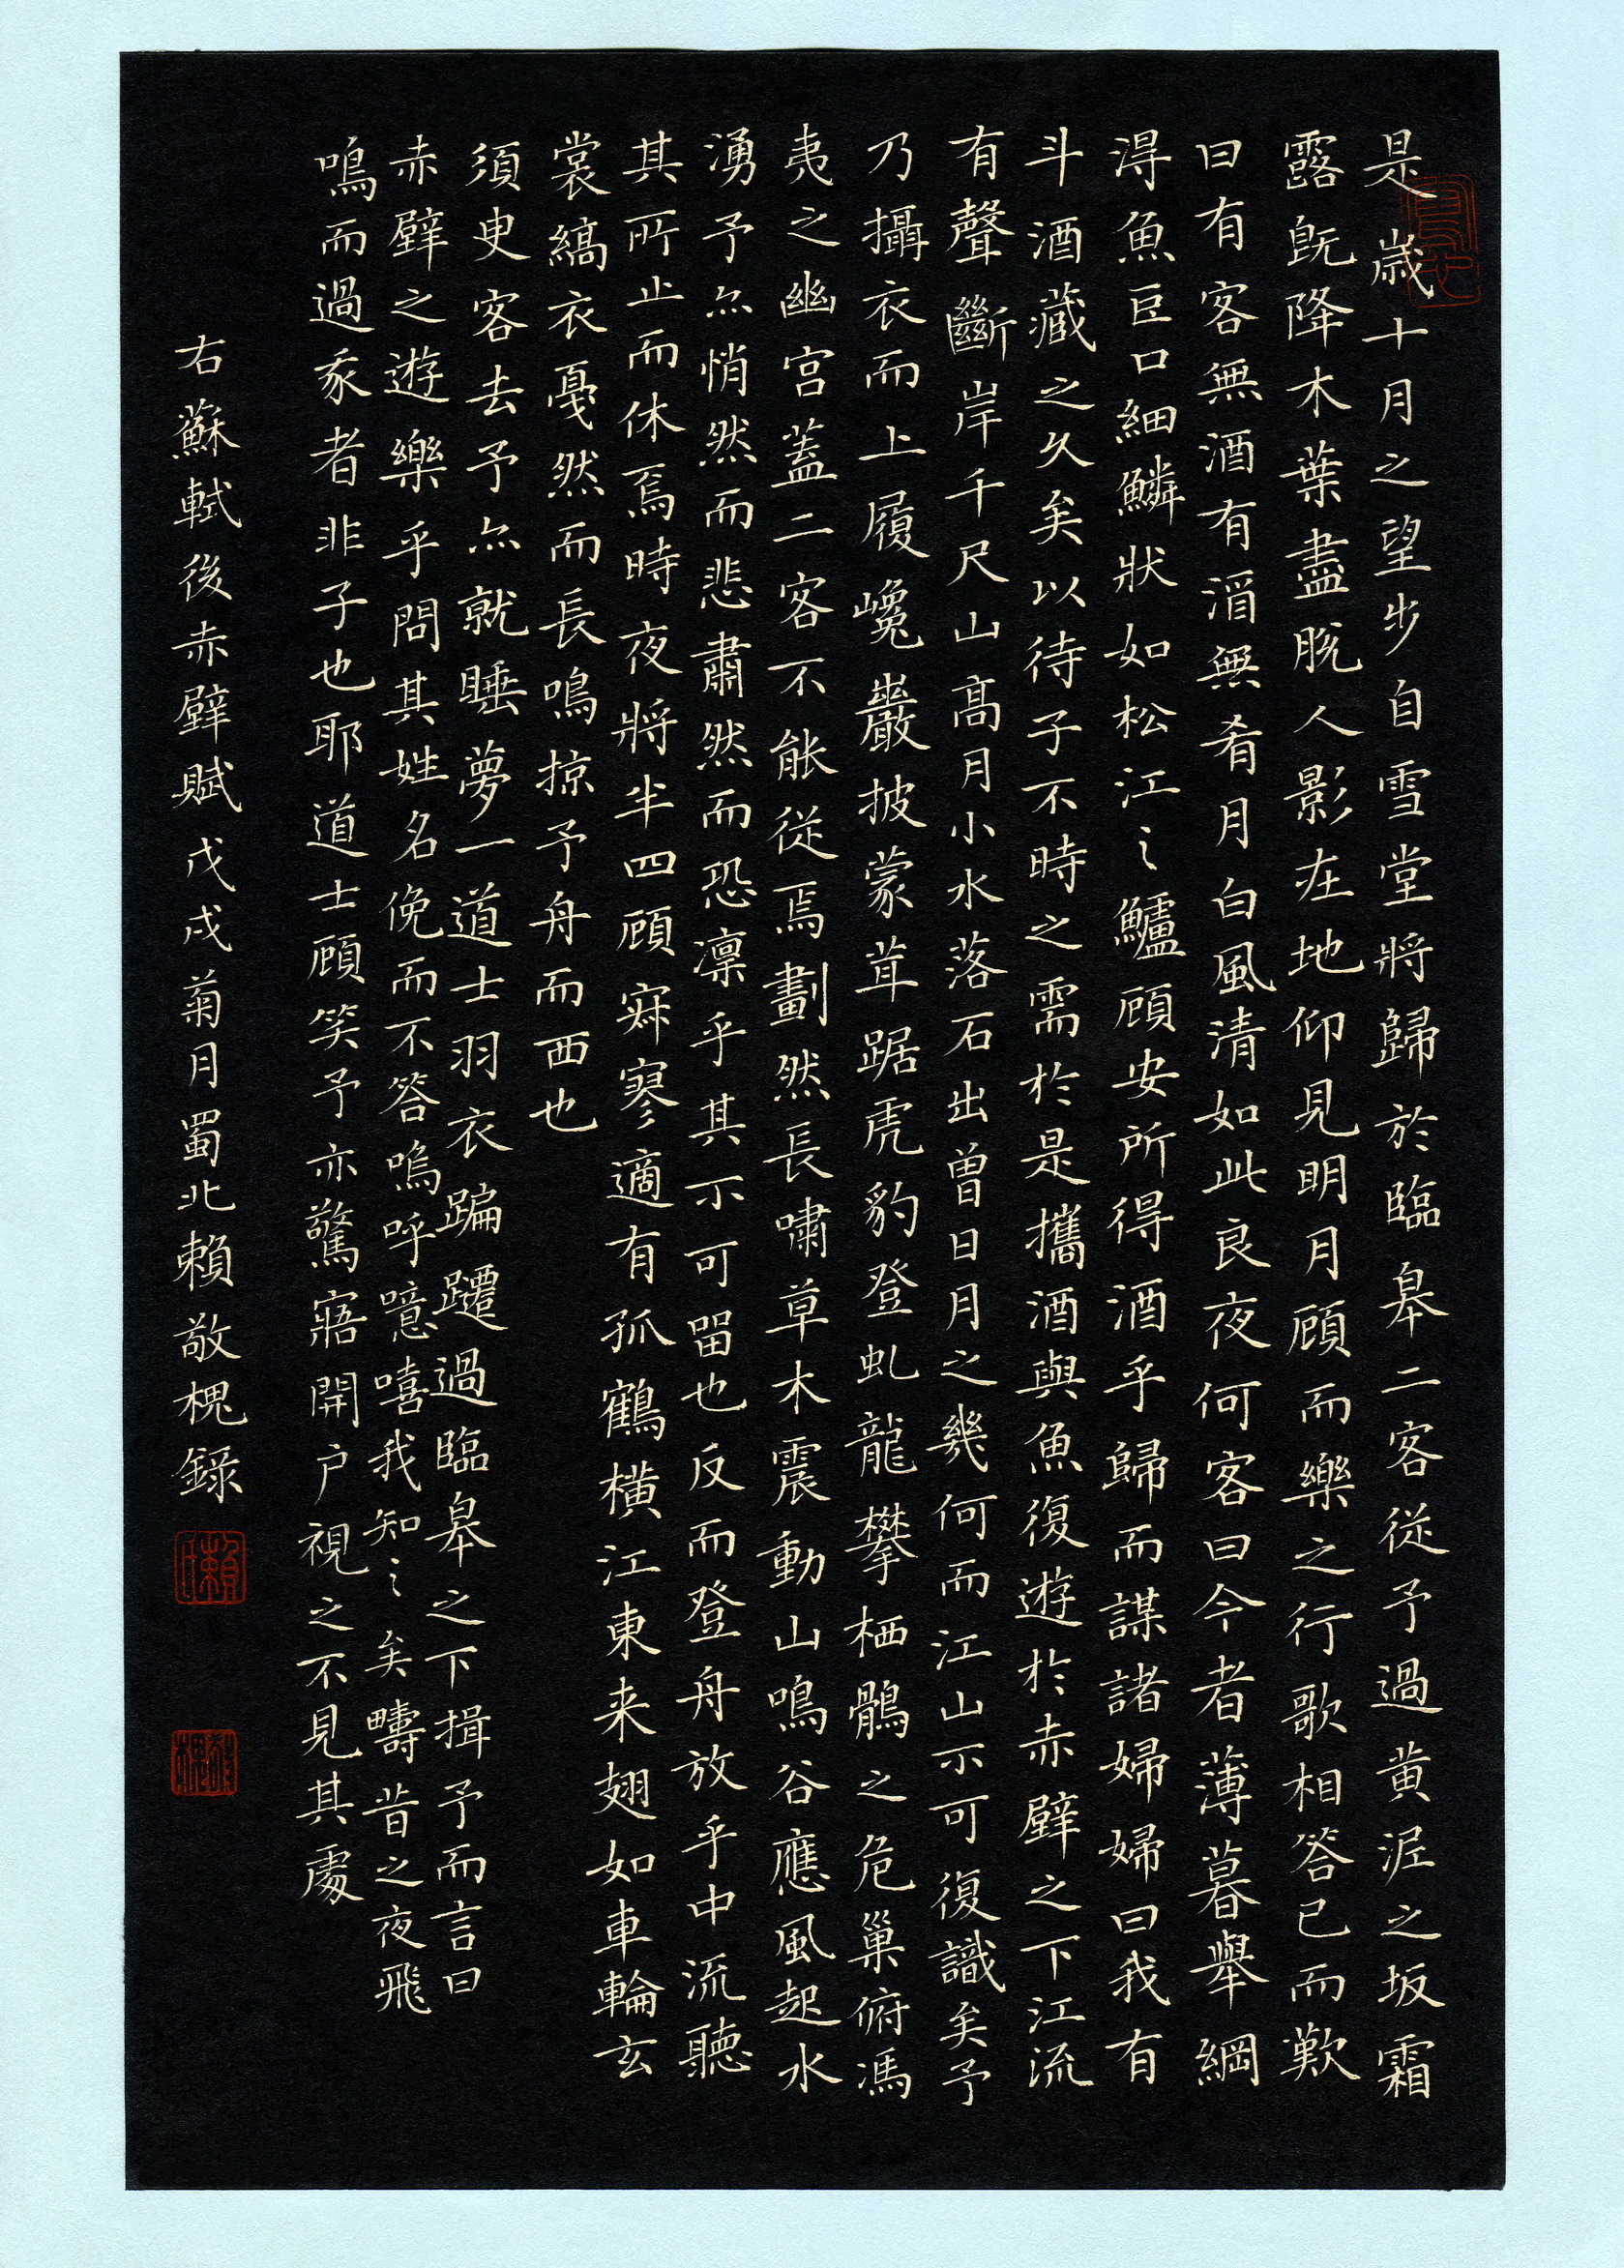 是歲十月之望步自雪堂將歸於臨皋二客従予過黄泥之坂霜
露既降木葉盡脫人影在地仰見明月顧而樂之行歌相答已而歎
曰有客無酒有酒無肴月白風清如此良夜何客曰今者薄暮舉網
得魚巨口細鱗狀如松江之鱸顧安所得酒乎歸而謀諸婦婦曰我有
斗酒藏之久矣以待子不時之需於是攜酒與魚復遊於赤壁之下江流
有聲斷岸千尺山高月小水落石出曽日月之幾何而江山不可復識矣予
乃攝衣而上履巉巖披蒙茸踞虎豹登虬龍攀栖鶻之危巢俯馮
夷之幽宮蓋二客不能從焉劃然長嘯草木震動山鳴谷應風起水
湧予亦悄然而悲肅然而恐凛乎其不可留也反而登舟放乎中流聽
其所止而休焉時夜將半四顧寂寥適有孤鶴橫江東来翅如車輪玄
裳縞衣戛然而長鳴掠予舟而西也
須臾客去予亦就睡夢一道士羽衣蹁躚過臨皋之下揖予而言曰
赤壁之遊樂乎問其姓名俛而不答嗚呼噫嘻我知之矣疇昔之夜飛
鳴而過我者非子也耶道士顧笑予亦驚寤開户視之不見其處
右蘇軾後赤壁賦戊戌菊月蜀北賴敬槐錄